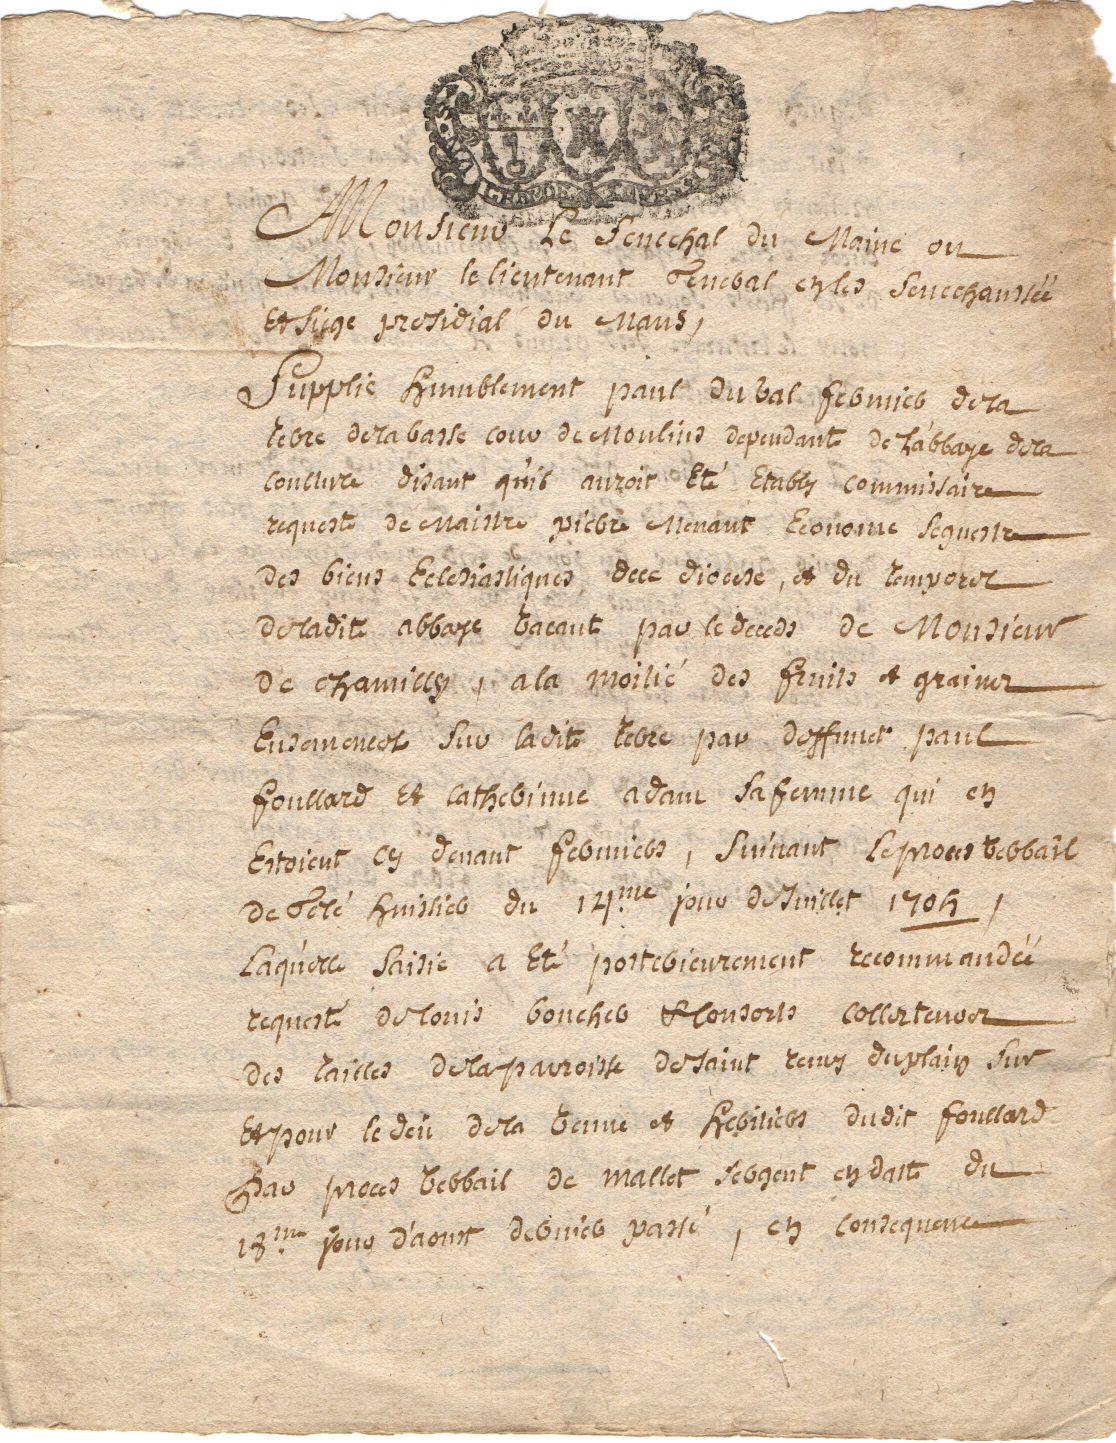 Monsieur Le Senechal du Maine ou
Monsieur le lieutenant General en les Senechaussée
Et Siège presidial du Mans,
Supplie humblement paul du val fermier de la
terre de la basse cour de Moulins dependante de l'abbaye de la
Coulture disant qu'il auroit Eté Etably commissaire
requeste de Maistre pierre Menant Econome sequestre
des biens Eclesiastiques de ce diocese, et du temporel
de ladite abbaye vacant par le deceds de Monsieur
de Chamilly, a la moitié des fruits et graines
Ensemencez sur ladite terre par deffunct paul
foullard et Catherinne adam sa femme qui en
Estoient cy devant fermiers, suivant le proces verbail
de Gelé huissier du 14.me jour de Juillet 1705,
Laquelle saisie a Eté posterieurement recommandée
requeste de louis boucher & consorts collecteures
des tailles de la parroisse de saint remy du plain sur
et pour le deü de la veuve et heritiers dudit foullard
par proces verbail de mallet sergent en datte du
18.me jour d'aoust dernier passé, en consequence